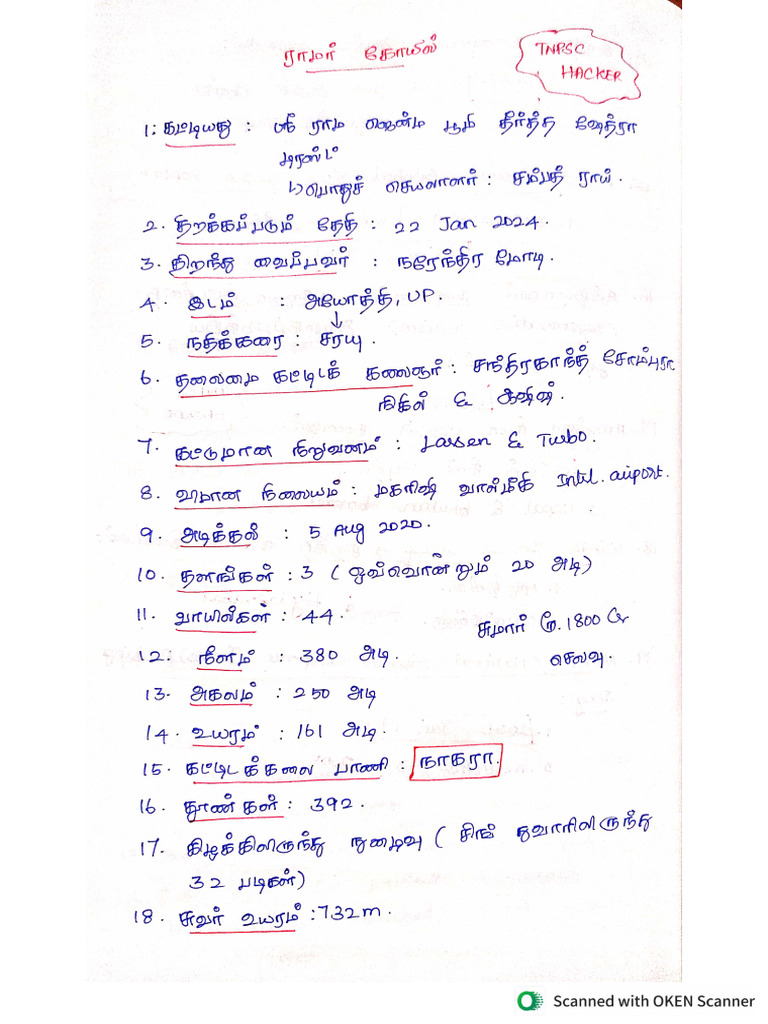 ராமர் கோயில்
TNPSC
HACKER
1. கட்டியது : ஸ்ரீ ராம ஜென்ம பூமி தீர்த்த ஷேத்ரா
டிரஸ்ட்
↳ பொதுச் செயலாளர் : சம்பத் ராய்.
2. திறக்கப்படும் தேதி : 22 Jan 2024.
3. திறந்து வைப்பவர் : நரேந்திர மோடி.
4. இடம் : அயோத்தி, UP.
↓
5. நதிக்கரை : சரயு.
6. தலைமை கட்டிடக் கலைஞர் : சந்திரகாந்த் சோம்புரா
நிகில் & ஆஷிஷ்.
7. கட்டுமான நிறுவனம் : Larsen & Turbo.
8. விமான நிலையம் : மகரிஷி வால்மீகி Intl. airport.
9. அடிக்கல் : 5 Aug 2020.
10. தளங்கள் : 3 ( ஒவ்வொன்றும் 20 அடி)
11. வாயில்கள் : 44.
சுமார் ரூ.1800 Cr
செலவு.
12. நீளம் : 380 அடி.
13. அகலம் : 250 அடி
14. உயரம் : 161 அடி.
15. கட்டிடக்கலை பாணி : நாகரா.
16. தூண்கள் : 392.
17. கிழக்கிலிருந்து நுழைவு ( சிங் துவாரிலிருந்து
32 படிகள்)
18. சுவர் உயரம் : 732m.
Scanned with OKEN Scanner